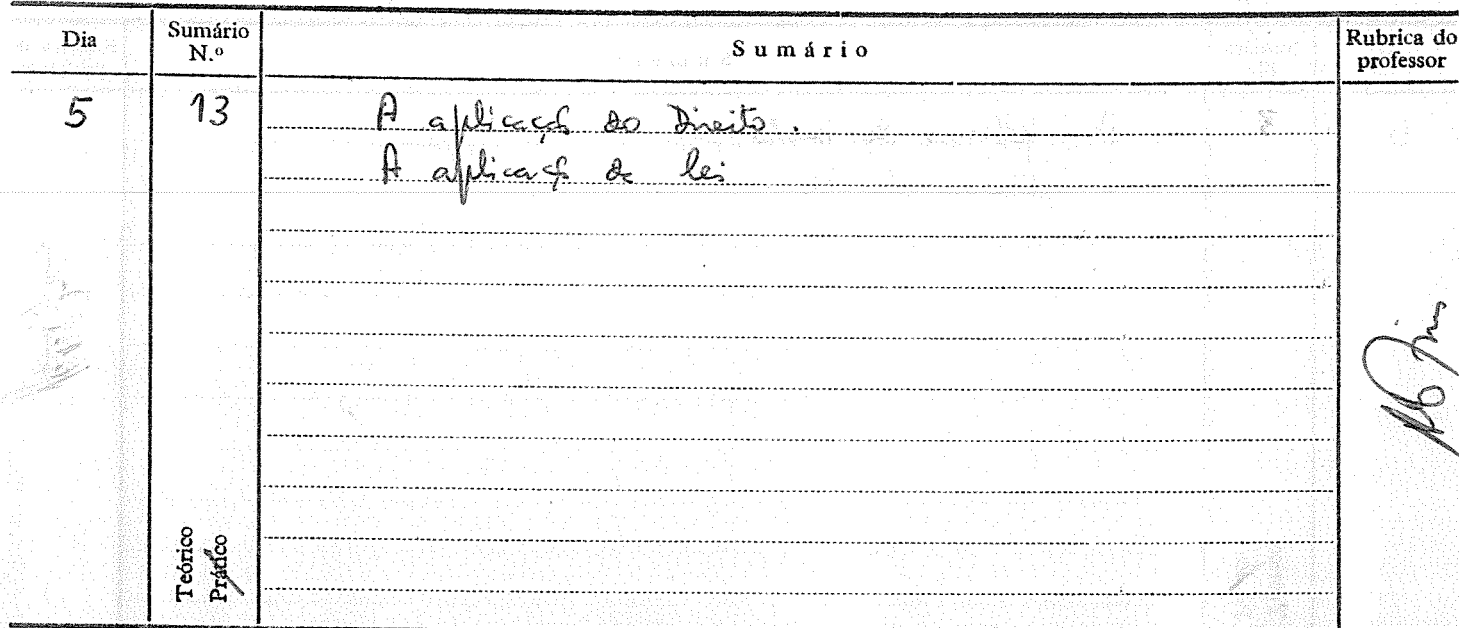 Dia
Sumário N.º
Sumário
Rubrica do professor
5
13
A aplicação do Direito.
A aplicação da lei
Teórico
Prático